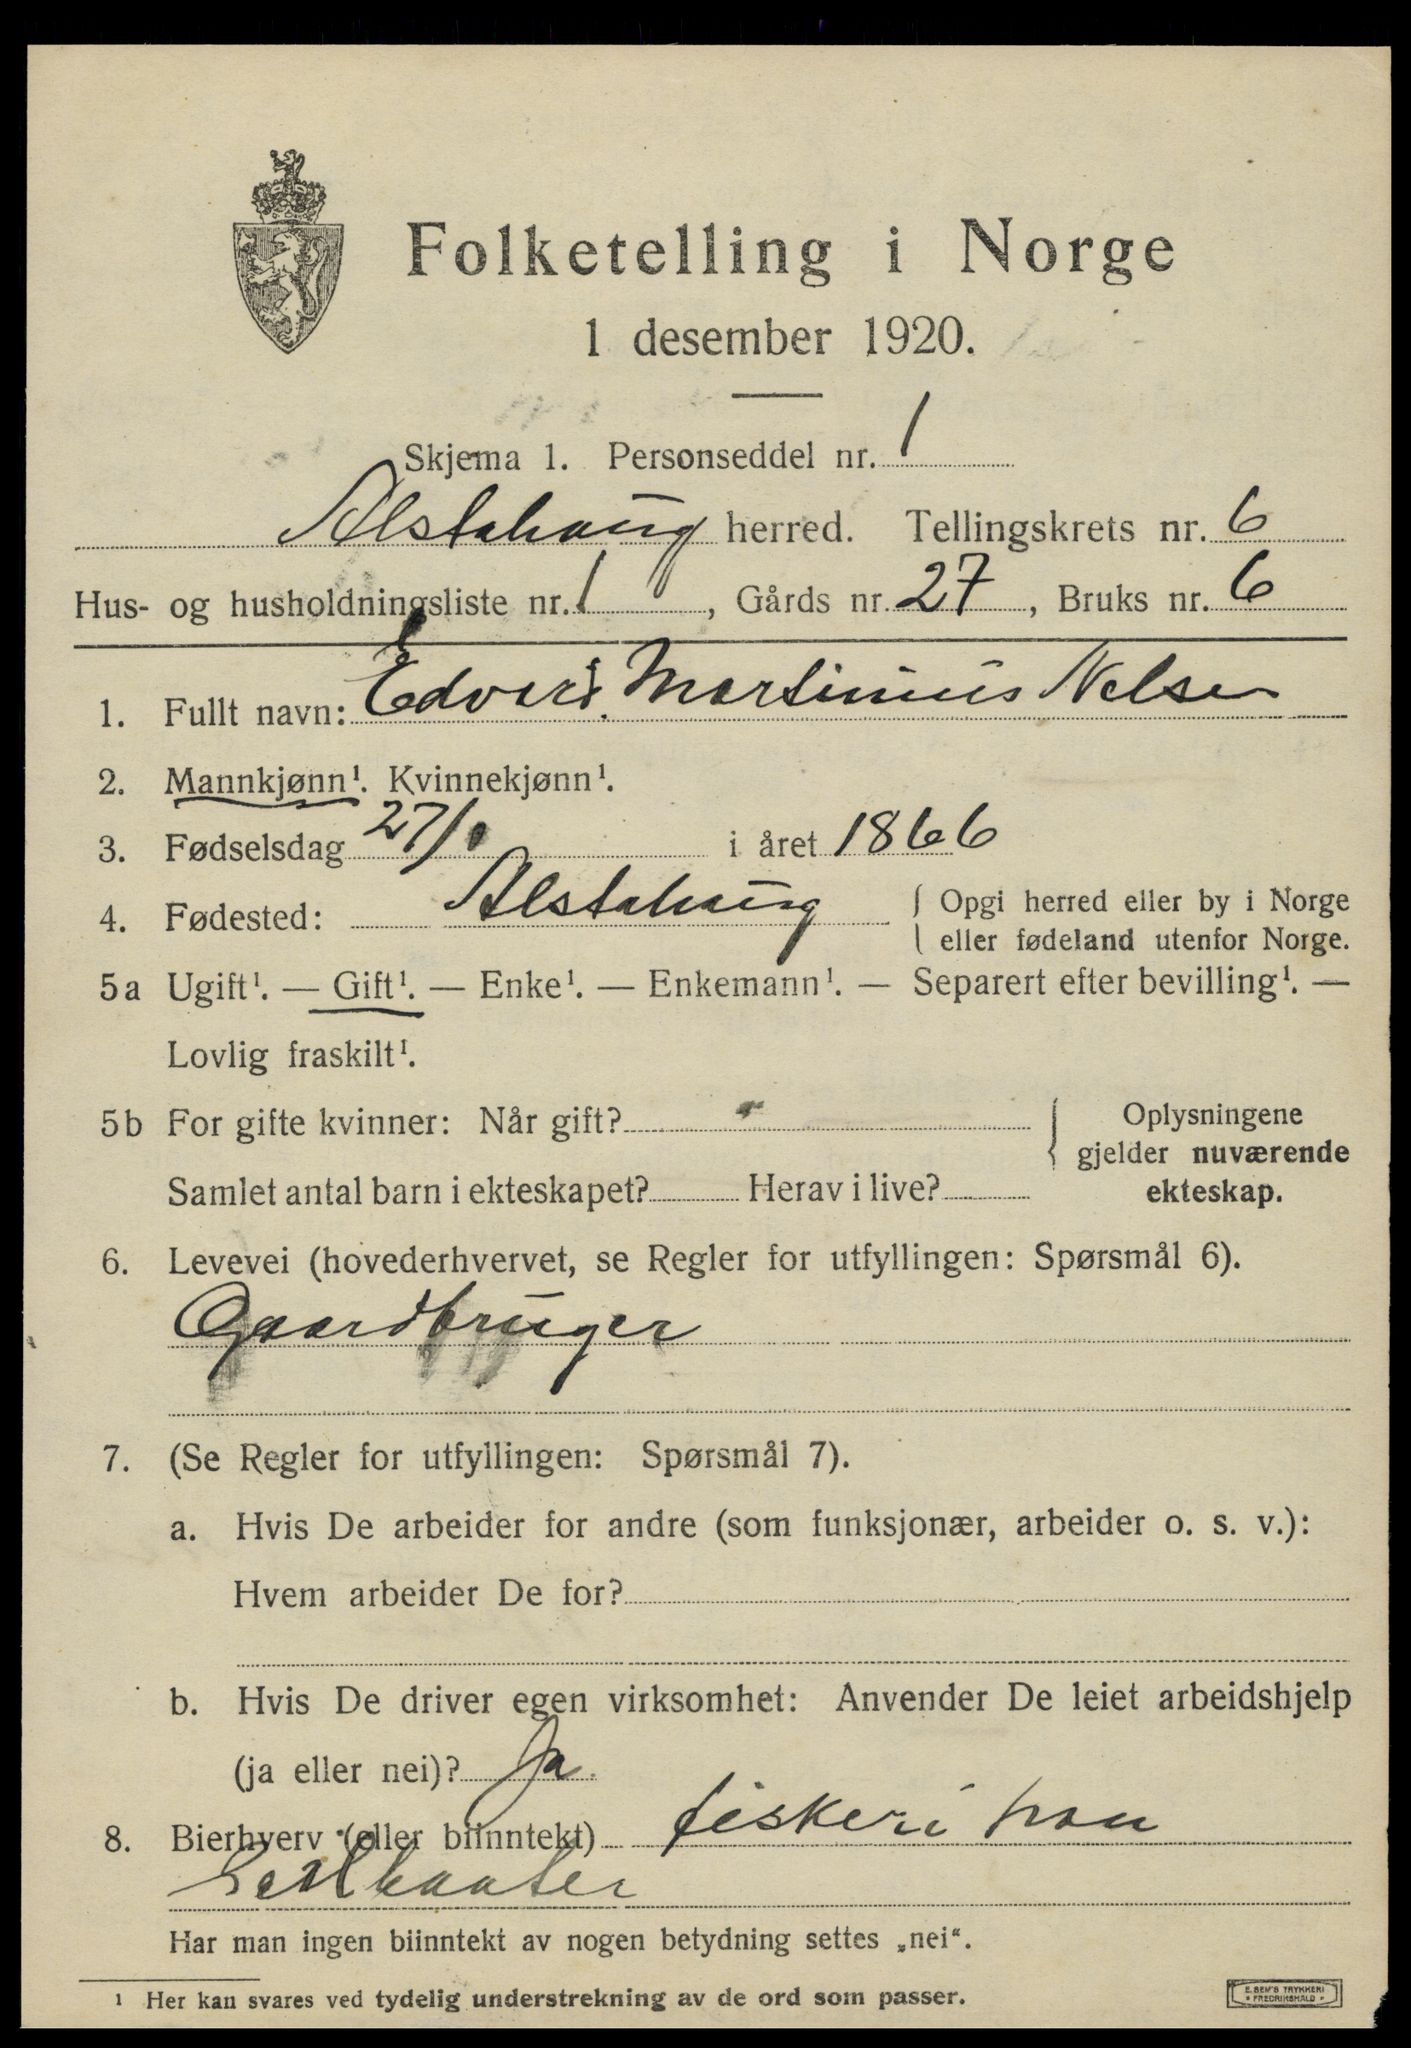 Folketelling i Norge
1 desember 1920.
Skjema 1. Personseddel nr. 1
Alstahaug herred. Tellingskrets nr. 6
Hus- og husholdningsliste nr. 1, Gårds nr. 27, Bruks nr. 6
1. Fullt navn: Edvard Martinius Nelsen
2. Mannkjønn¹. Kvinnekjønn¹.
3. Fødselsdag 27/ i året 1866
4. Fødested: Alstahaug { Opgi herred eller by i Norge
eller fødeland utenfor Norge.
5a Ugift¹. — Gift¹. — Enke¹. — Enkemann¹. — Separert efter bevilling¹. —
Lovlig fraskilt¹.
5b For gifte kvinner: Når gift?
Samlet antal barn i ekteskapet? Herav i live?
Oplysningene
gjelder nuværende
ekteskap.
6. Levevei (hovederhvervet, se Regler for utfyllingen: Spørsmål 6).
Gaardbruger
7. (Se Regler for utfyllingen: Spørsmål 7).
a. Hvis De arbeider for andre (som funksjonær, arbeider o. s. v.):
Hvem arbeider De for?
b. Hvis De driver egen virksomhet: Anvender De leiet arbeidshjelp
(ja eller nei)? Ja.
8. Bierhverv (eller biinntekt) fiskeri paa
Har man ingen biinntekt av nogen betydning settes „nei“.
¹ Her kan svares ved tydelig understrekning av de ord som passer.
E. SEM'S TRYKKERI
FREDRIKSHALD